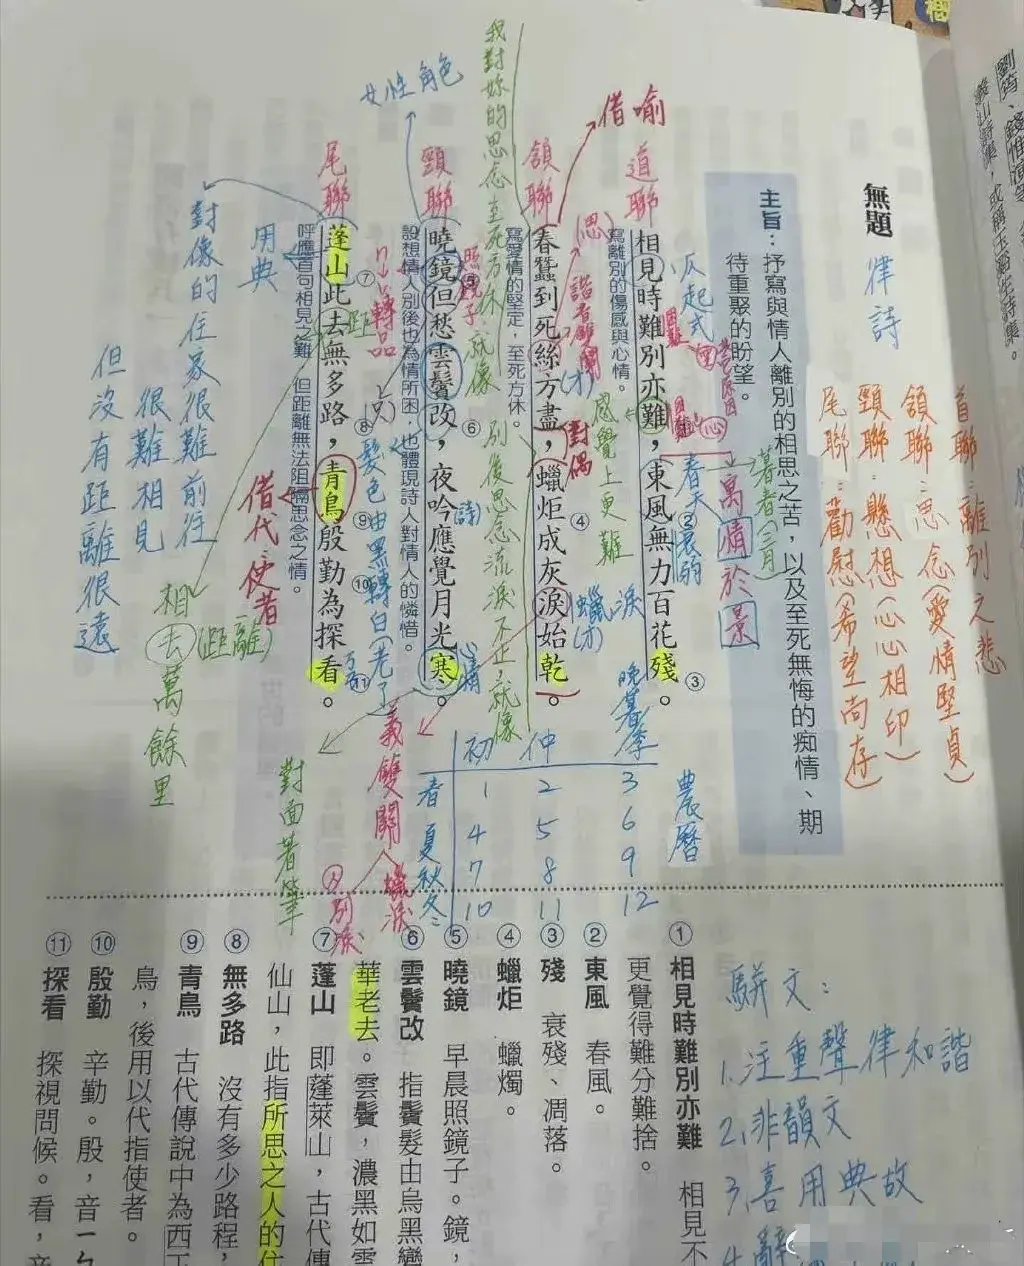 無題
律詩
主旨：抒寫與情人離別的相思之苦，以及至死無悔的痴情、期
待重聚的盼望。
首聯：離別之悲
頷聯：思念(愛情堅貞)
頸聯：懸想(心心相印)
尾聯：勸慰(希望尚存)
相見時難別亦難，東風無力百花殘③。
寫離別的傷感與心情。
仄起式
春天
衰弱
感覺上更難
寓情於景
借喻
頷聯
春蠶到死絲方盡，蠟炬④成灰淚始乾。
寫愛情的堅定，至死方休。
(思)
對偶
蠟淚
我對妳的思念至死方休，就像
別後思念流淚不止，就像
女性角色
頸聯
曉鏡但愁雲鬢改⑥，夜吟應覺月光寒。
設想情人別後也為情所困，也體現詩人對情人的憐惜。
照鏡子
(詩)
心情
轉品
髮色由黑轉白(老了)
尾聯
蓬山⑦此去無多路⑧，青鳥⑨殷勤⑩為探看⑪。
呼應首句相見之難 但距離無法阻隔思念之情。
用典
借代：使者
對像的住家很難前往
很難相見
但沒有距離很遠
相去(距離)萬餘里
對面著筆
義雙關
人 蠟淚
別淚
初 仲 季
晚
暮
春 1 2 3
夏 4 5 6
秋 7 8 9
冬 10 11 12
農曆
① 相見時難別亦難 相見不
更覺得難分難捨。
② 東風 春風。
③ 殘 衰殘、凋落。
④ 蠟炬 蠟燭。
⑤ 曉鏡 早晨照鏡子。鏡，
⑥ 雲鬢改 指鬢髮由烏黑變
華老去。雲鬢，濃黑如雲
⑦ 蓬山 即蓬萊山，古代傳
仙山，此指所思之人的住
⑧ 無多路 沒有多少路程，
⑨ 青鳥 古代傳說中為西王
鳥，後用以代指使者。
⑩ 殷勤 辛勤。殷，音ㄧㄣ
⑪ 探看 探視問候。看，音
駢文：
1.注重聲律和諧
2.非韻文
3.喜用典故